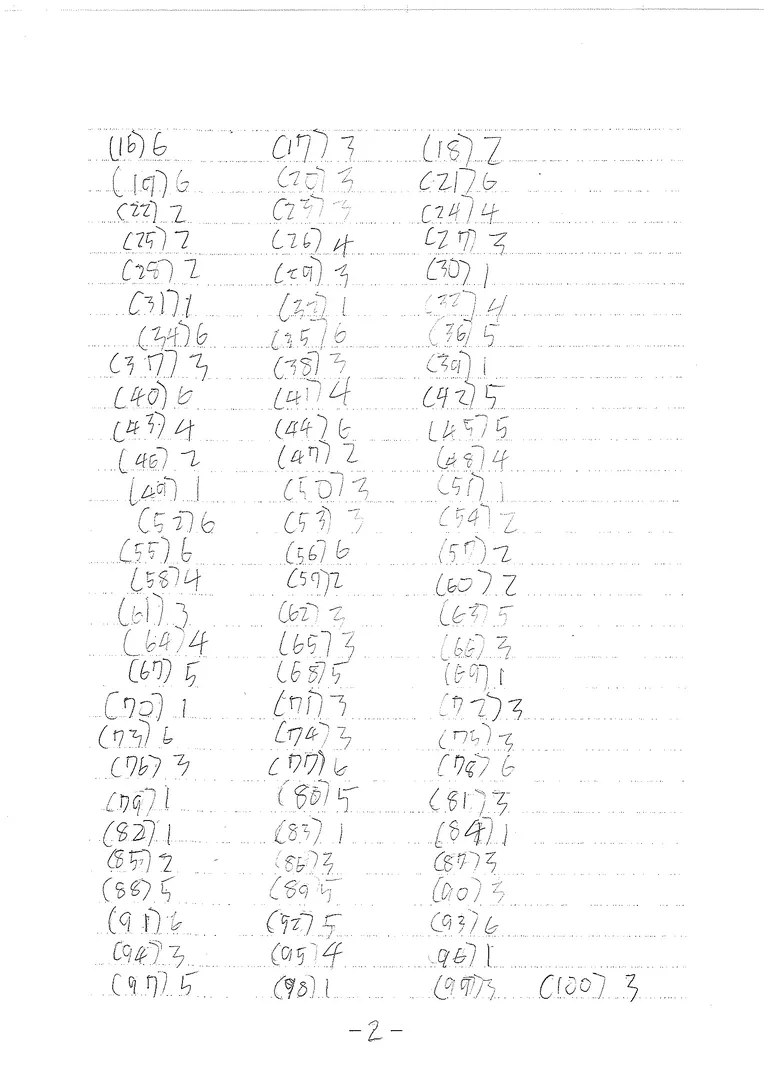 (16) 6 (17) 3 (18) 2
(19) 6 (20) 3 (21) 6
(22) 2 (23) 3 (24) 4
(25) 2 (26) 4 (27) 3
(28) 2 (29) 3 (30) 1
(31) 1 (32) 1 (33) 4
(34) 6 (35) 6 (36) 5
(37) 3 (38) 3 (39) 1
(40) 6 (41) 4 (42) 5
(43) 4 (44) 6 (45) 5
(46) 2 (47) 2 (48) 4
(49) 1 (50) 3 (51) 1
(52) 6 (53) 3 (54) 2
(55) 6 (56) 6 (57) 2
(58) 4 (59) 2 (60) 2
(61) 3 (62) 3 (63) 5
(64) 4 (65) 3 (66) 3
(67) 5 (68) 5 (69) 1
(70) 1 (71) 3 (72) 3
(73) 6 (74) 3 (75) 3
(76) 3 (77) 6 (78) 6
(79) 1 (80) 5 (81) 3
(82) 1 (83) 1 (84) 1
(85) 2 (86) 3 (87) 3
(88) 5 (89) 5 (90) 3
(91) 6 (92) 5 (93) 6
(94) 3 (95) 4 (96) 1
(97) 5 (98) 1 (99) 3 (100) 3
- 2 -